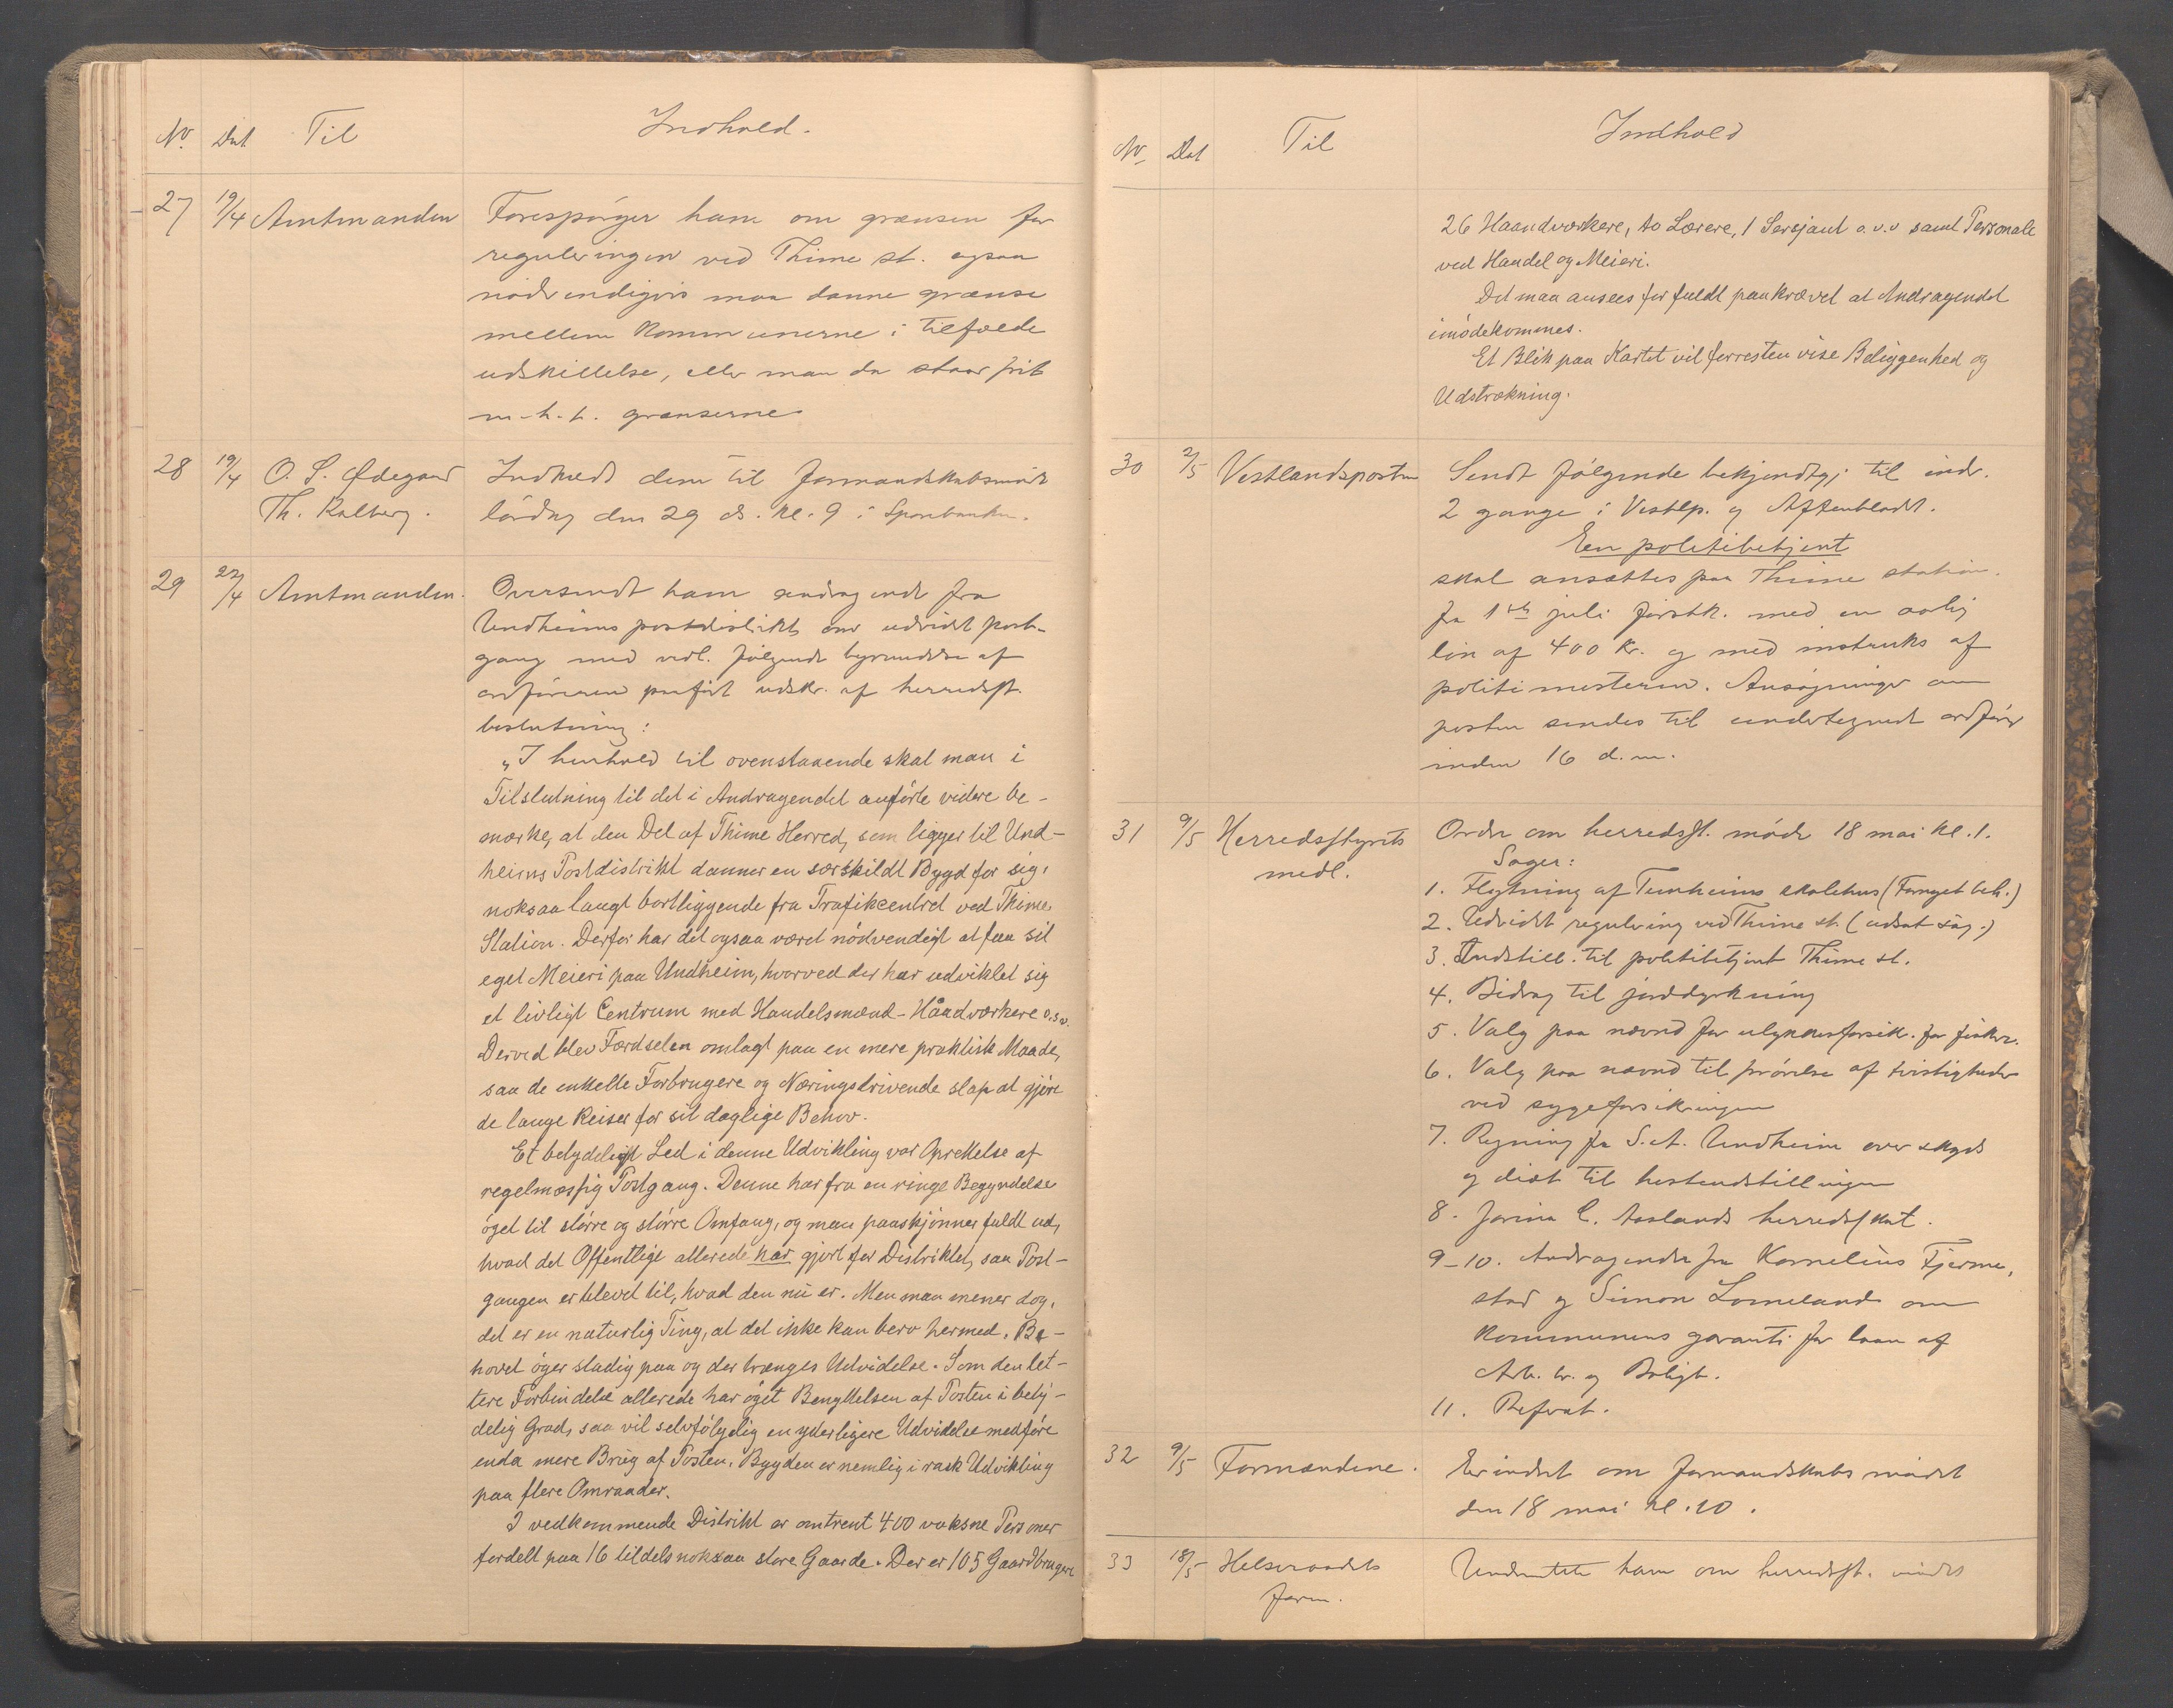 No. Dat Til Indhold.
27 19/4 Amtmanden Forespørger ham om grænsen for
reguleringen ved Thime st. ogsaa
nødvendigvis maa danne grænse
mellem Kommunerne i tilfælde
udskillelse, eller man da staar frit
m.h.t. grænserne
28 19/4 O. S. Ødegaard Indkaldt dem til formandskabsmøde
Th. Kalberg. lørdag den 29 ds. kl. 9 i Sparebanken.
29 22/4 Amtmanden. Oversendt ham andragende fra
Undheims postdistrikt om udvidet post-
gang med vedl. følgende begrundelse af
ordføreren paaført udskr. af herredsst.
beslutning:
„I henhold til ovenstaaende skal man i
Tilslutning til det i Andragendet anførte videre be-
mærke, at den Del af Thime Herred, som ligger til Und-
heims Postdistrikt danner en særskildt Bygd for sig,
noksaa langt bortliggende fra Trafikcentret ved Thime
Station. Derfor har det ogsaa været nødvendigt at faa sit
eget Meieri paa Undheim, hvorved der har udviklet sig
et livligt Centrum med Handelsmænd - Håndværkere o.s.v.
Derved blev Færdselen omlagt paa en mere praktisk Maade,
saa de enkelte Forbrugere og Næringsdrivende slap at gjøre
de lange Reiser for sit daglige Behov.
Et betydeligt Led i denne Udvikling var Oprettelse af
regelmæssig Postgang. Denne har fra en ringe Begyndelse
øget til større og større Omfang, og man paaskjønner fuldt ud,
hvad det Offentlige allerede har gjort for Distriktet, saa Post-
gangen er blevet til, hvad den nu er. Men man mener dog,
det er en naturlig Ting, at det ikke kan bero hermed. Be-
hovet øger stadig paa og der trænges Udvidelse. Som den let-
tere Forbindelse allerede har øget Benyttelsen af Posten i bety-
delig Grad, saa vil selvfølgelig en yderligere Udvidelse medføre
enda mere Brug af Posten. Bygden er nemlig i rask Udvikling
paa flere Omraader.
I vedkommende Distrikt er omtrent 400 voksne Personer
fordelt paa 16 tildels noksaa store Gaarde. Der er 105 Gaardbrugere
No. Dat Til Indhold
26 Haandværkere, to Lærere, 1 Sersjant o.s.v samt Personale
ved Handel og Meieri.
Det maa ansees for fuldt paakrævet at Andragendet
imødekommes.
Et Blik paa Kartet vil forresten vise Beliggenhed og
Udstrækning.
30 2/5 Vestlandsposten Sendt følgende bekjendtgj til indr.
2 gange i Vestlp. og Aftenbladet.
En politibetjent
skal ansættes paa Thime station
fra 1ste juli førstk. med en aarlig
løn af 400 kr. og med instruks af
politimesteren. Ansøgninger om
posten sendes til undertegnede ordfører
inden 16 d.m.
31 9/5 Herredsstyrets Ordre om herredsst. møde 18 mai kl. 1.
medl. Sager:
1. Flytning af Tunheims skolehus (Fornyet beh.)
2. Udvidet regulering ved Thime st. (udsat sag.)
3. Indstill. til politibetjent Thime st.
4. Bidrag til jorddyrkning
5. Valg paa nævnd for ulykkesforsik. for fiskere.
6. Valg paa nævnd til prøvelse af tvistigheder
ved sygeforsikringen
7. Regning fra S. A. Undheim over skyds
og diæt til hesteudstillingen
8. Jorina C. Aaslands herredsskat.
9-10. Andragende fra Kornelius Fjerme-
stad og Simon Lomeland om
kommunens garanti for laan af
Arb. br. og Boligb.
11. Referat.
32 9/5 Formændene. Erindret om formandskabs mødet
den 18 mai kl. 10.
33 18/5 Helseraadets Underrettet ham om herredsst.
form.